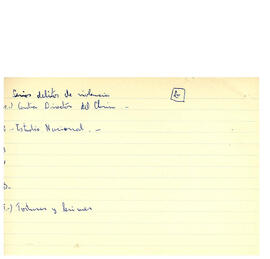 Serios delitos de violencia
2
1.-) Contra Director del Clarín. -
- Estadio Nacional. -
D.-
E.-) Torturas y lesiones